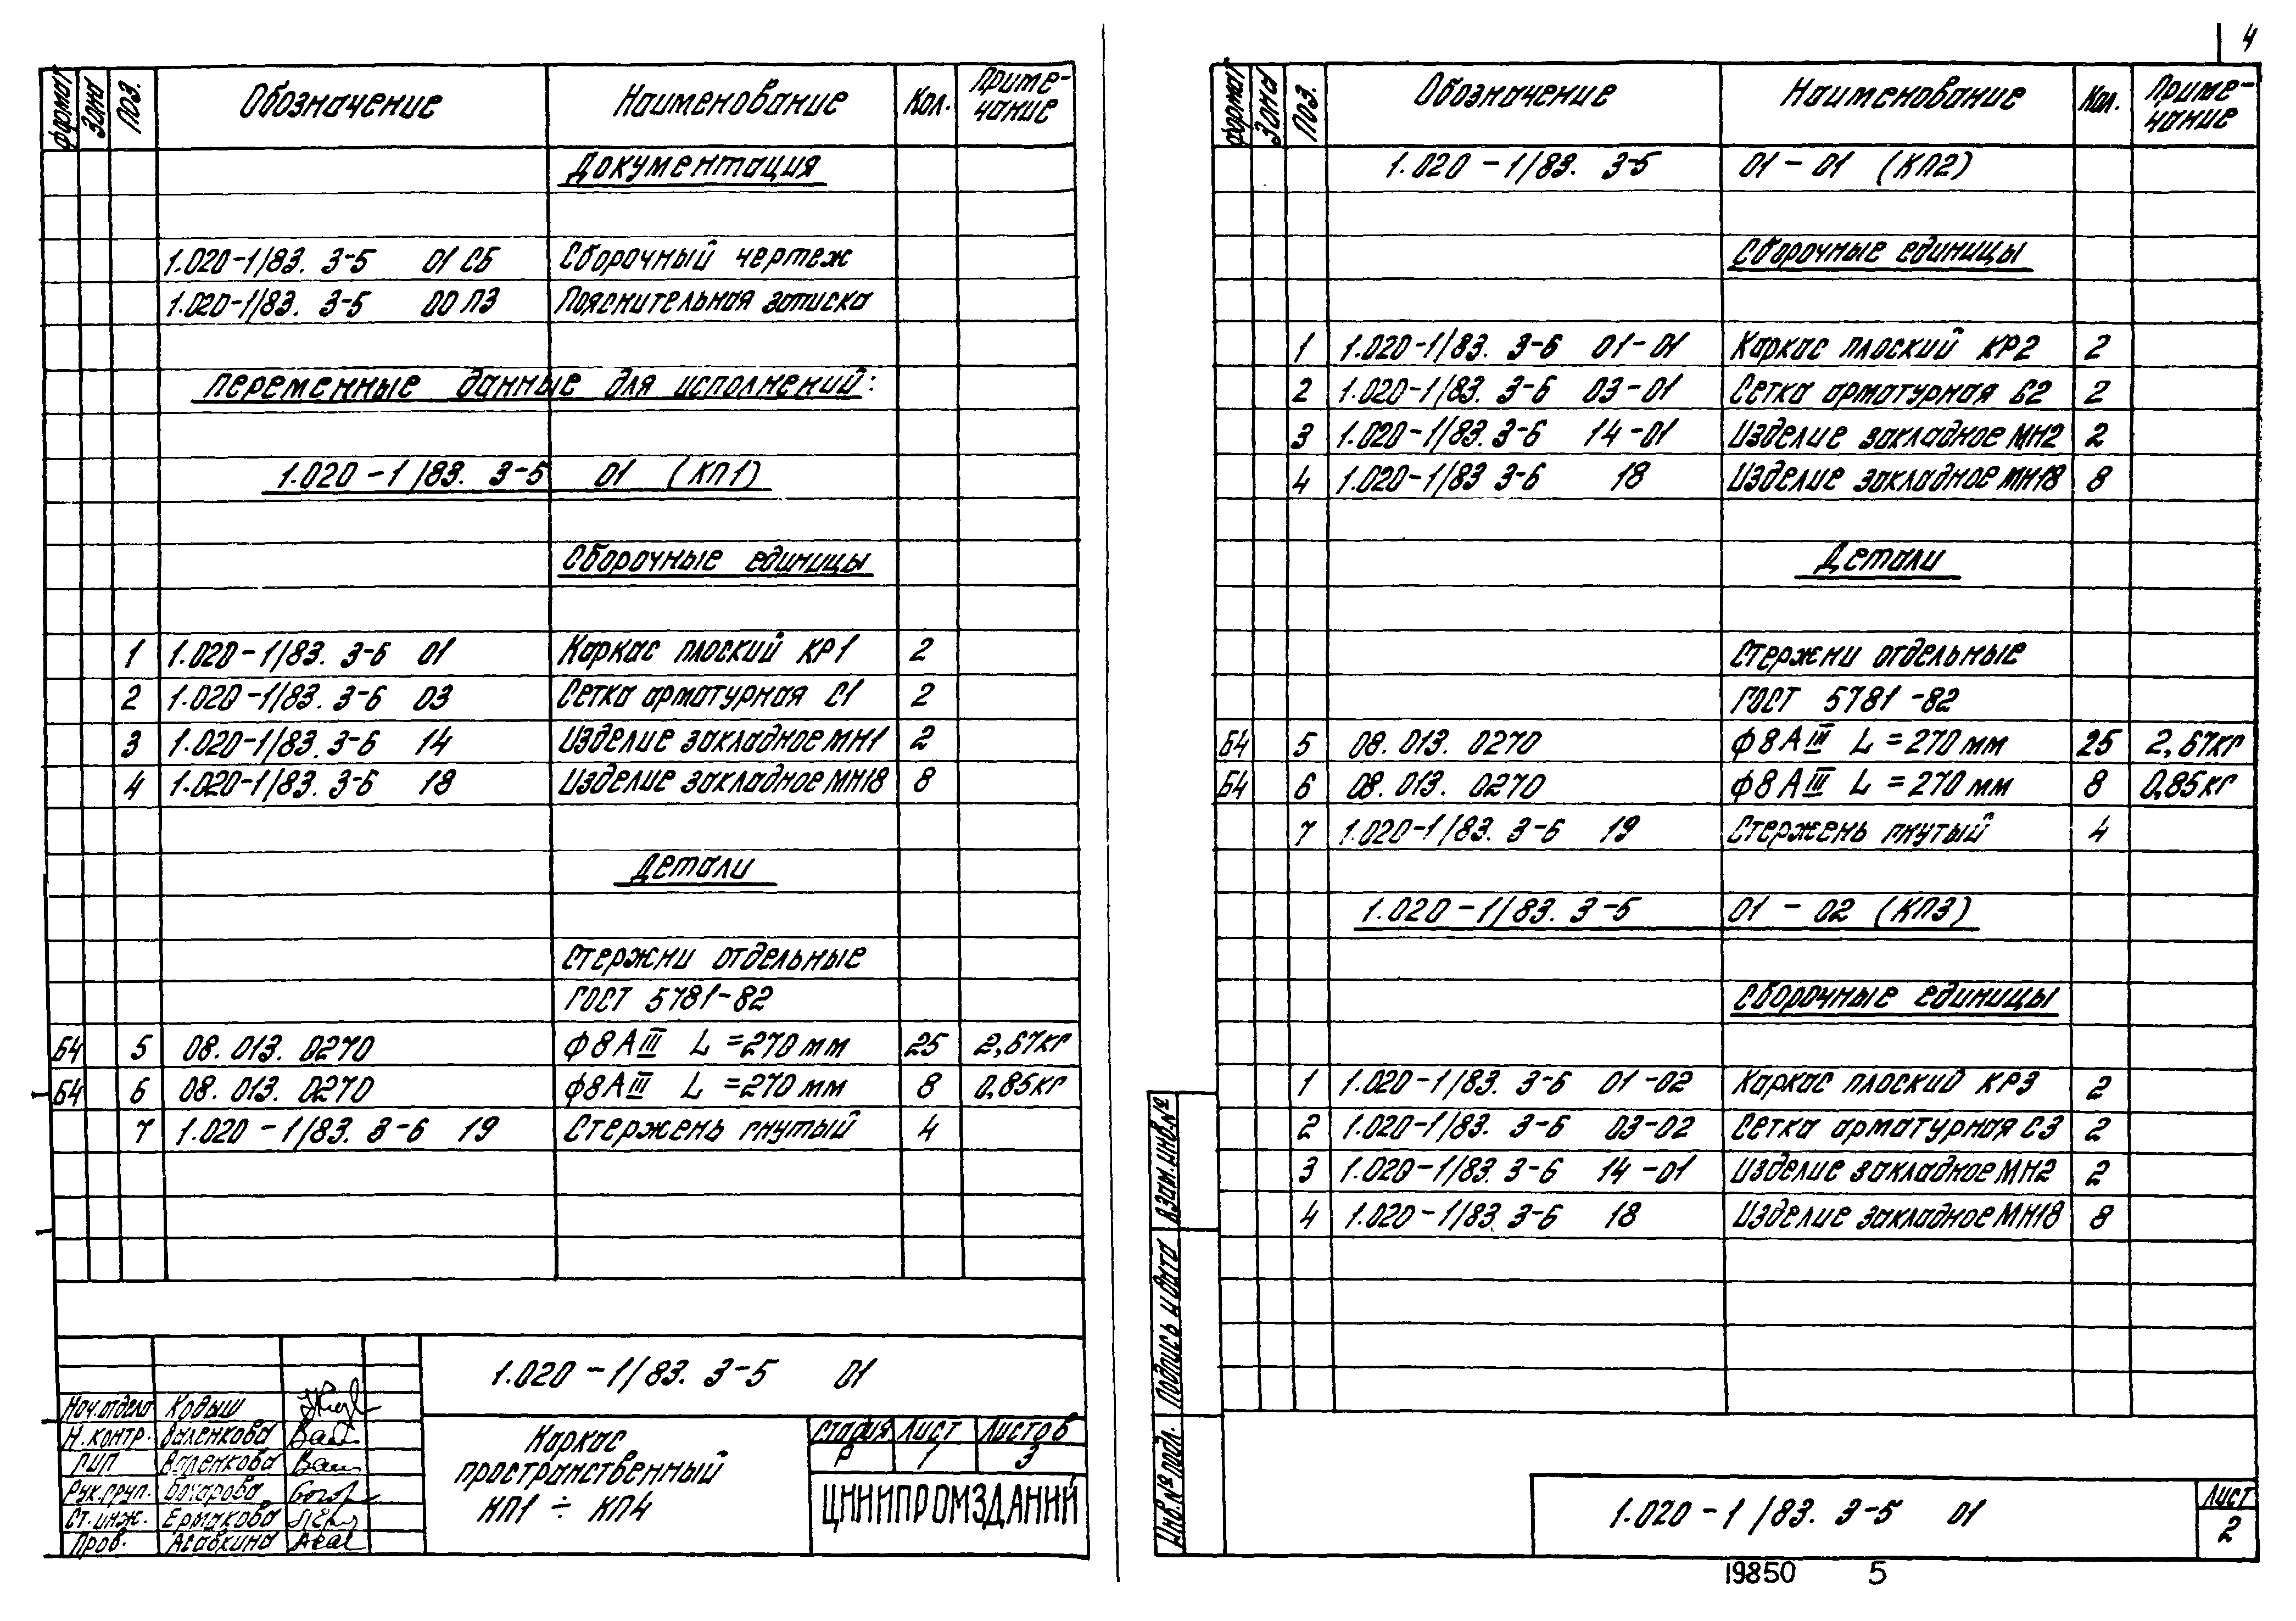 4
Формат Зона Поз. Обозначение Наименование Кол. Приме-
чание
Документация
1.020-1/83. 3-5 01 СБ Сборочный чертеж
1.020-1/83. 3-5 00 ПЗ Пояснительная записка
Переменные данные для исполнений:
1.020-1/83. 3-5 01 (КП1)
Сборочные единицы
1 1.020-1/83. 3-6 01 Каркас плоский КР1 2
2 1.020-1/83. 3-6 03 Сетка арматурная С1 2
3 1.020-1/83. 3-6 14 Изделие закладное МН1 2
4 1.020-1/83. 3-6 18 Изделие закладное МН18 8
Детали
Стержни отдельные
ГОСТ 5781-82
Б4 5 08. 013. 0270 ф8АIII L =270 мм 25 2,67кг
Б4 6 08. 013. 0270 ф8АIII L =270 мм 8 0,85кг
7 1.020-1/83. 3-6 19 Стержень гнутый 4
1.020-1/83. 3-5 01
Нач.отдела Кодыш
Н.контр. Валенкова
ГИП Валенкова
Рук.груп. Бочарова
Ст.инж. Ермакова
Пров. Агавкина
Каркас
пространственный
КП1 ÷ КП4
Стадия Лист Листов
Р 1 3
ЦНИИПРОМЗДАНИЙ
Формат Зона Поз. Обозначение Наименование Кол. Приме-
чание
1.020-1/83. 3-5 01-01 (КП2)
Сборочные единицы
1 1.020-1/83. 3-6 01-01 Каркас плоский КР2 2
2 1.020-1/83. 3-6 03-01 Сетка арматурная С2 2
3 1.020-1/83. 3-6 14-01 Изделие закладное МН2 2
4 1.020-1/83 3-6 18 Изделие закладное МН18 8
Детали
Стержни отдельные
ГОСТ 5781-82
Б4 5 08. 013. 0270 ф8АIII L =270 мм 25 2,67кг
Б4 6 08. 013. 0270 ф8АIII L =270 мм 8 0,85кг
7 1.020-1/83. 3-6 19 Стержень гнутый 4
1.020-1/83. 3-5 01-02 (КП3)
Сборочные единицы
1 1.020-1/83. 3-6 01-02 Каркас плоский КР3 2
2 1.020-1/83. 3-6 03-02 Сетка арматурная С3 2
3 1.020-1/83. 3-6 14-01 Изделие закладное МН2 2
4 1.020-1/83 3-6 18 Изделие закладное МН18 8
Инв.№ подл. Подпись и дата Взам.инв.№
1.020-1/83. 3-5 01
Лист
2
19850 5